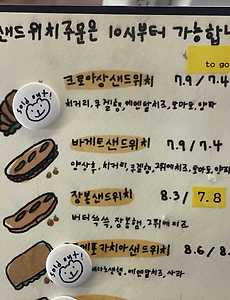 샌드위치 주문은 10시부터 가능합니
to go
크로아상샌드위치 7.9 / 7.4
치커리, 두겹햄, 에멘탈치즈, 토마토, 양파
sold out!
바게트샌드위치 7.9 / 7.4
양상추, 치커리, 두겹햄, 그뤼에치즈, 토마토, 양파
잠봉샌드위치 8.3 / 7.8
버터쓱쓱, 잠봉햄, 그뤼에치즈
포카치아샌드위치 8.6 / 8.
sold out!
에멘탈치즈, 사과